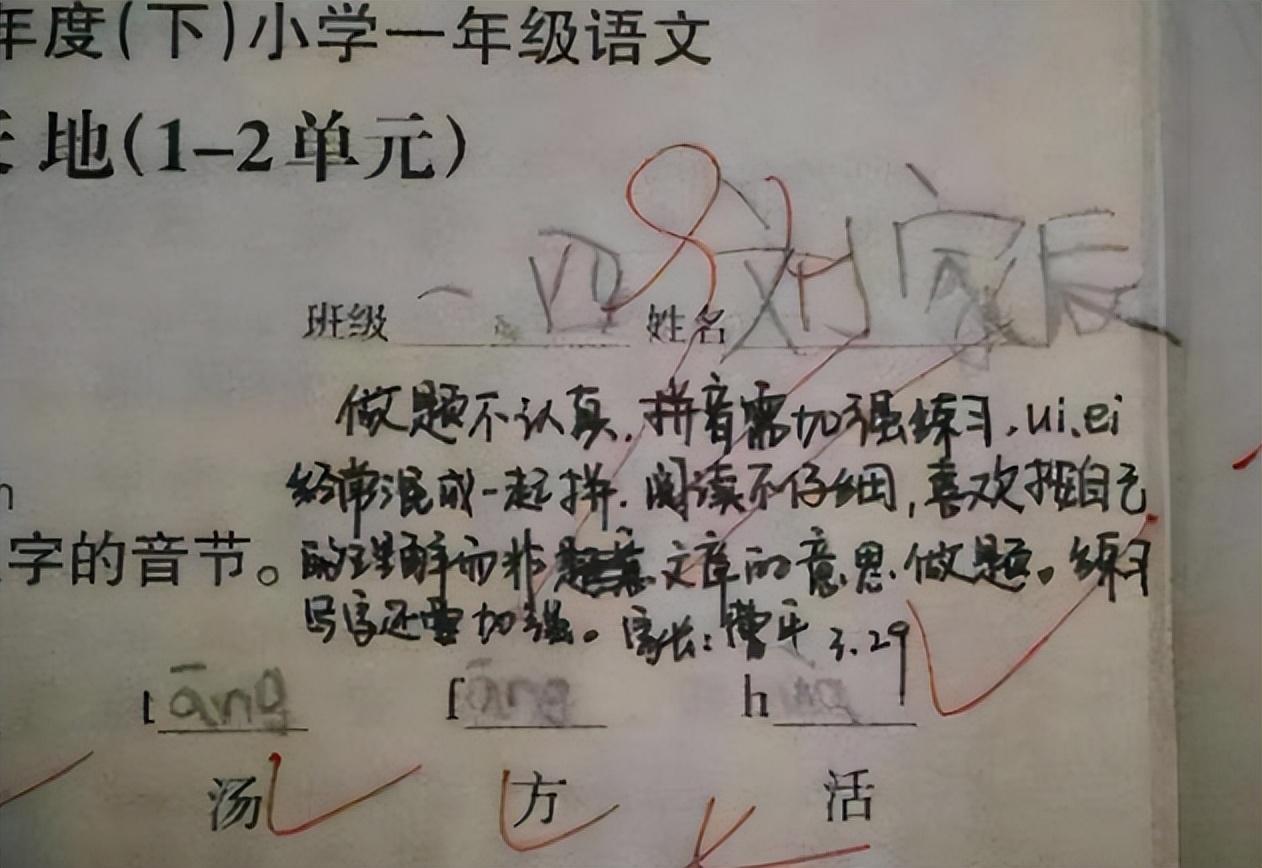 年度(下)小学一年级语文
地(1-2单元)
班级 一 四 姓名 刘家辰
做题不认真,拼音需加强练习,ui、ei
经常混成一起拼.阅读不仔细,喜欢按自己
的理解而非 文章的意思做题。练习
写字还需加强。家长:曹平 3.29
字的音节。
t āng f āng h
汤 方 活